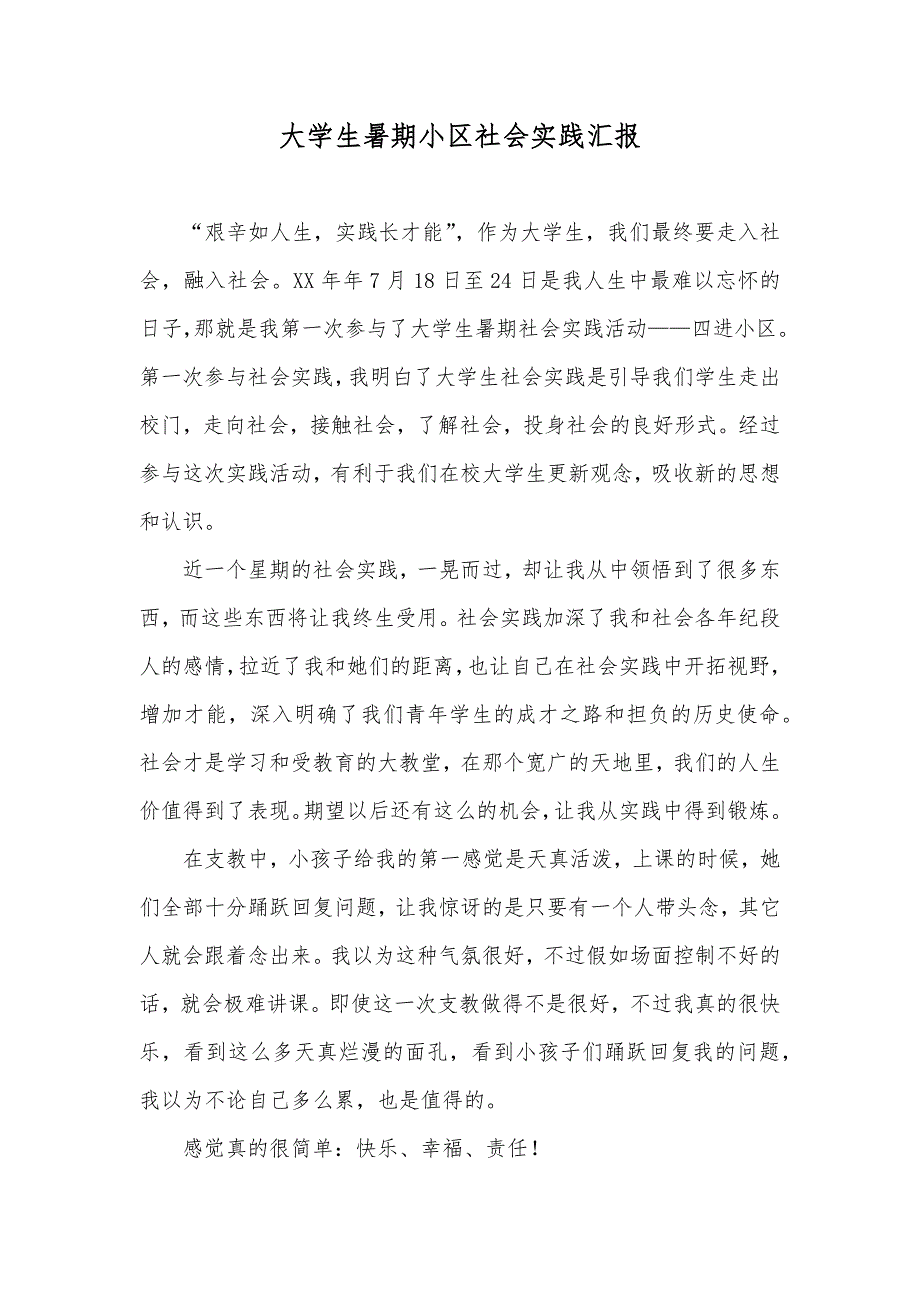 大学生暑期小区社会实践汇报
“艰辛如人生，实践长才能”，作为大学生，我们最终要走入社
会，融入社会。XX 年年 7 月 18 日至 24 日是我人生中最难以忘怀的
日子，那就是我第一次参与了大学生暑期社会实践活动——四进小区。
第一次参与社会实践，我明白了大学生社会实践是引导我们学生走出
校门，走向社会，接触社会，了解社会，投身社会的良好形式。经过
参与这次实践活动，有利于我们在校大学生更新观念，吸收新的思想
和认识。
近一个星期的社会实践，一晃而过，却让我从中领悟到了很多东
西，而这些东西将让我终生受用。社会实践加深了我和社会各年纪段
人的感情，拉近了我和她们的距离，也让自己在社会实践中开拓视野，
增加才能，深入明确了我们青年学生的成才之路和担负的历史使命。
社会才是学习和受教育的大教堂，在那个宽广的天地里，我们的人生
价值得到了表现。期望以后还有这么的机会，让我从实践中得到锻炼。
在支教中，小孩子给我的第一感觉是天真活泼，上课的时候，她
们全部十分踊跃回复问题，让我惊讶的是只要有一个人带头念，其它
人就会跟着念出来。我以为这种气氛很好，不过假如场面控制不好的
话，就会极难讲课。即使这一次支教做得不是很好，不过我真的很快
乐，看到这么多天真烂漫的面孔，看到小孩子们踊跃回复我的问题，
我以为不论自己多么累，也是值得的。
感觉真的很简单：快乐、幸福、责任！